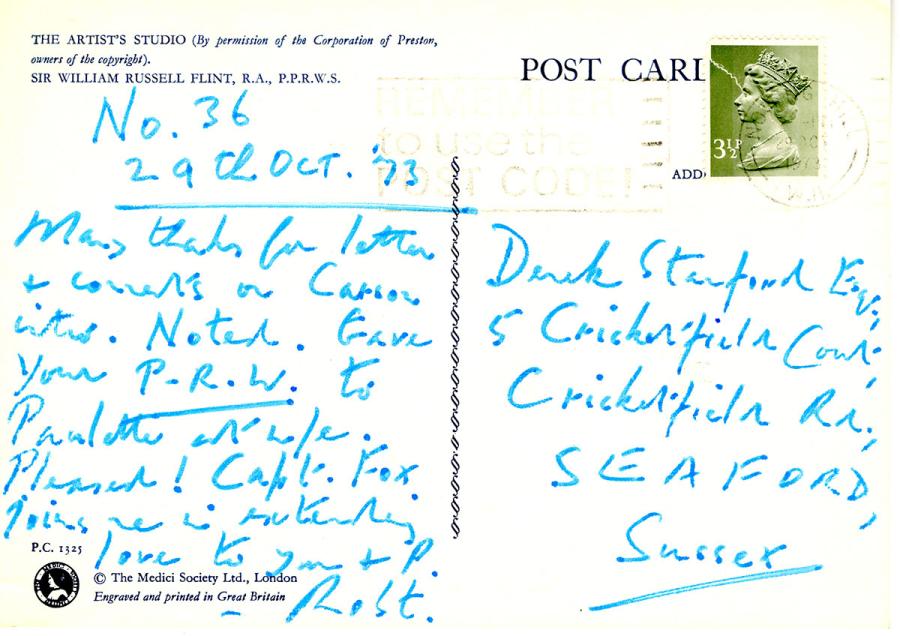 THE ARTIST'S STUDIO (By permission of the Corporation of Preston,
owners of the copyright).
SIR WILLIAM RUSSELL FLINT, R.A., P.P.R.W.S.
No. 36
29th OCT. '73
Many thanks for letter
+ comments on Carson
intro. Noted. Gave
your P.R.W. to
Paulette at w/e.
Pleased! Capt. Fox
joins me in extending
love to you + P.
- Robt.
P.C. 1325
© The Medici Society Ltd., London
Engraved and printed in Great Britain
POST CARD
REMEMBER
to use the
POST CODE!
3½P
ADD
Derek Stanford Esq.,
5 Cricketfield Court,
Cricketfield Rd.,
SEAFORD,
Sussex